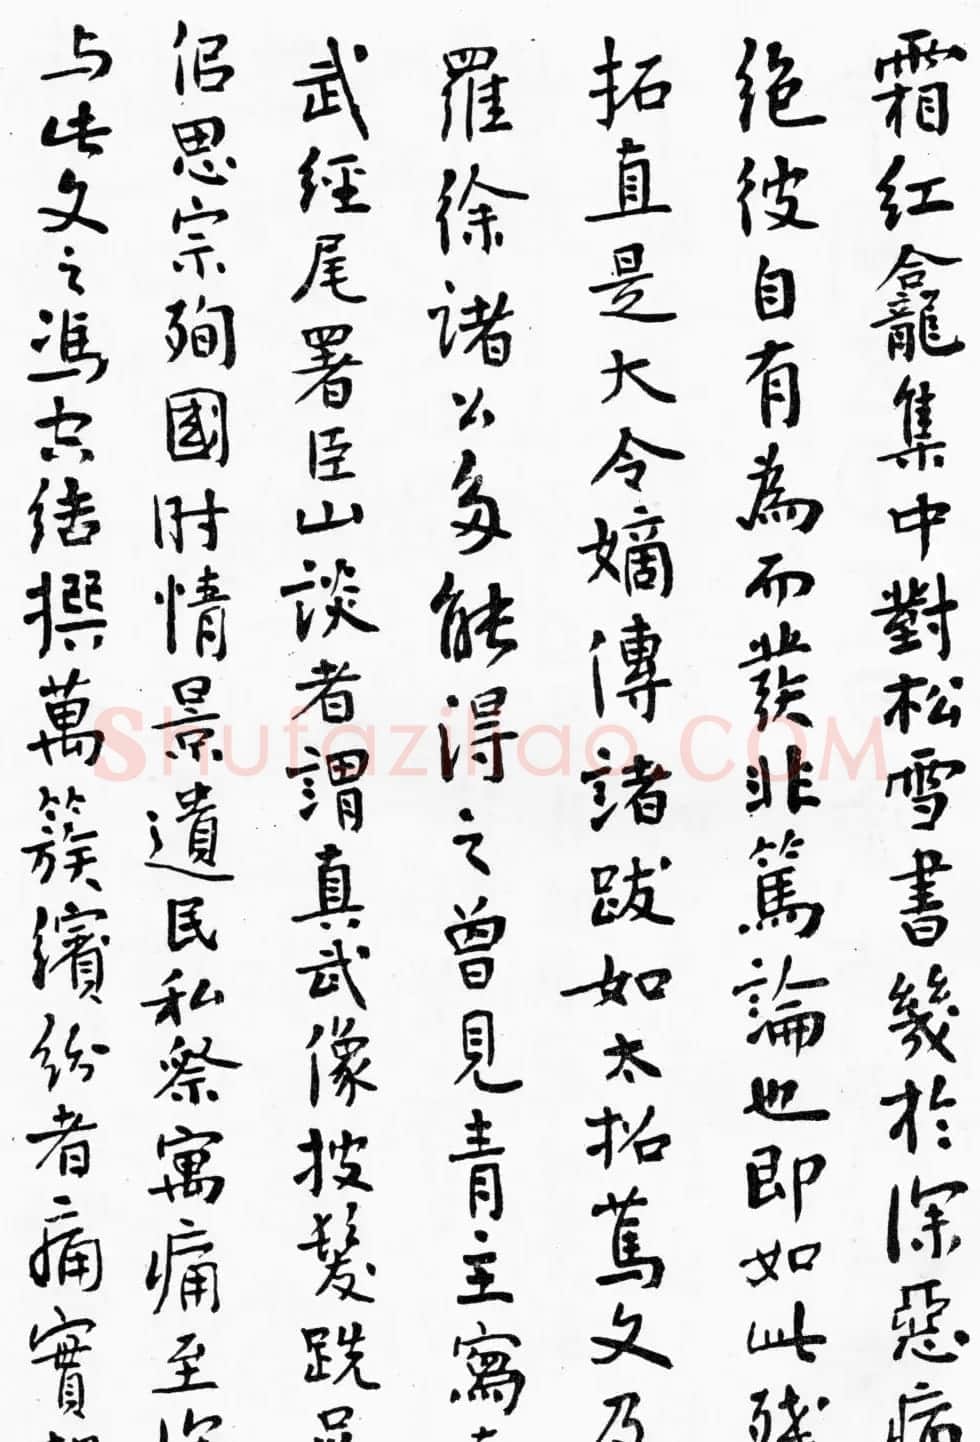 霜红龛集中對松雪書幾於深惡痛
絶彼自有為而發非篤論也即如此殘
拓直是大令嫡傳諸跋如太拓蔦文乃
羅徐諸公多能得之曾見青主寫真
武經尾署臣山談者謂真武像披髮跣足
侣思宗殉國时情景遺民私祭寓痛至深
与此文之馮空结撰萬簇繽纷者痛實
Shufaziliao.COM